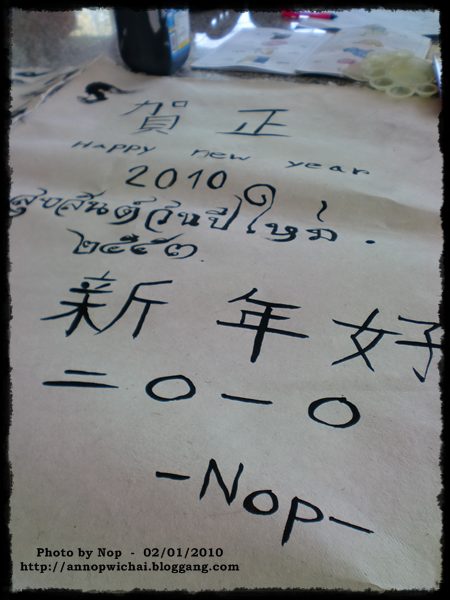 賀正
Happy new year
2010
สุขสันต์วันปีใหม่.
๒๕๕๓
新年好
二〇一〇
-Nop-
Photo by Nop - 02/01/2010
http://annopwichai.bloggang.com